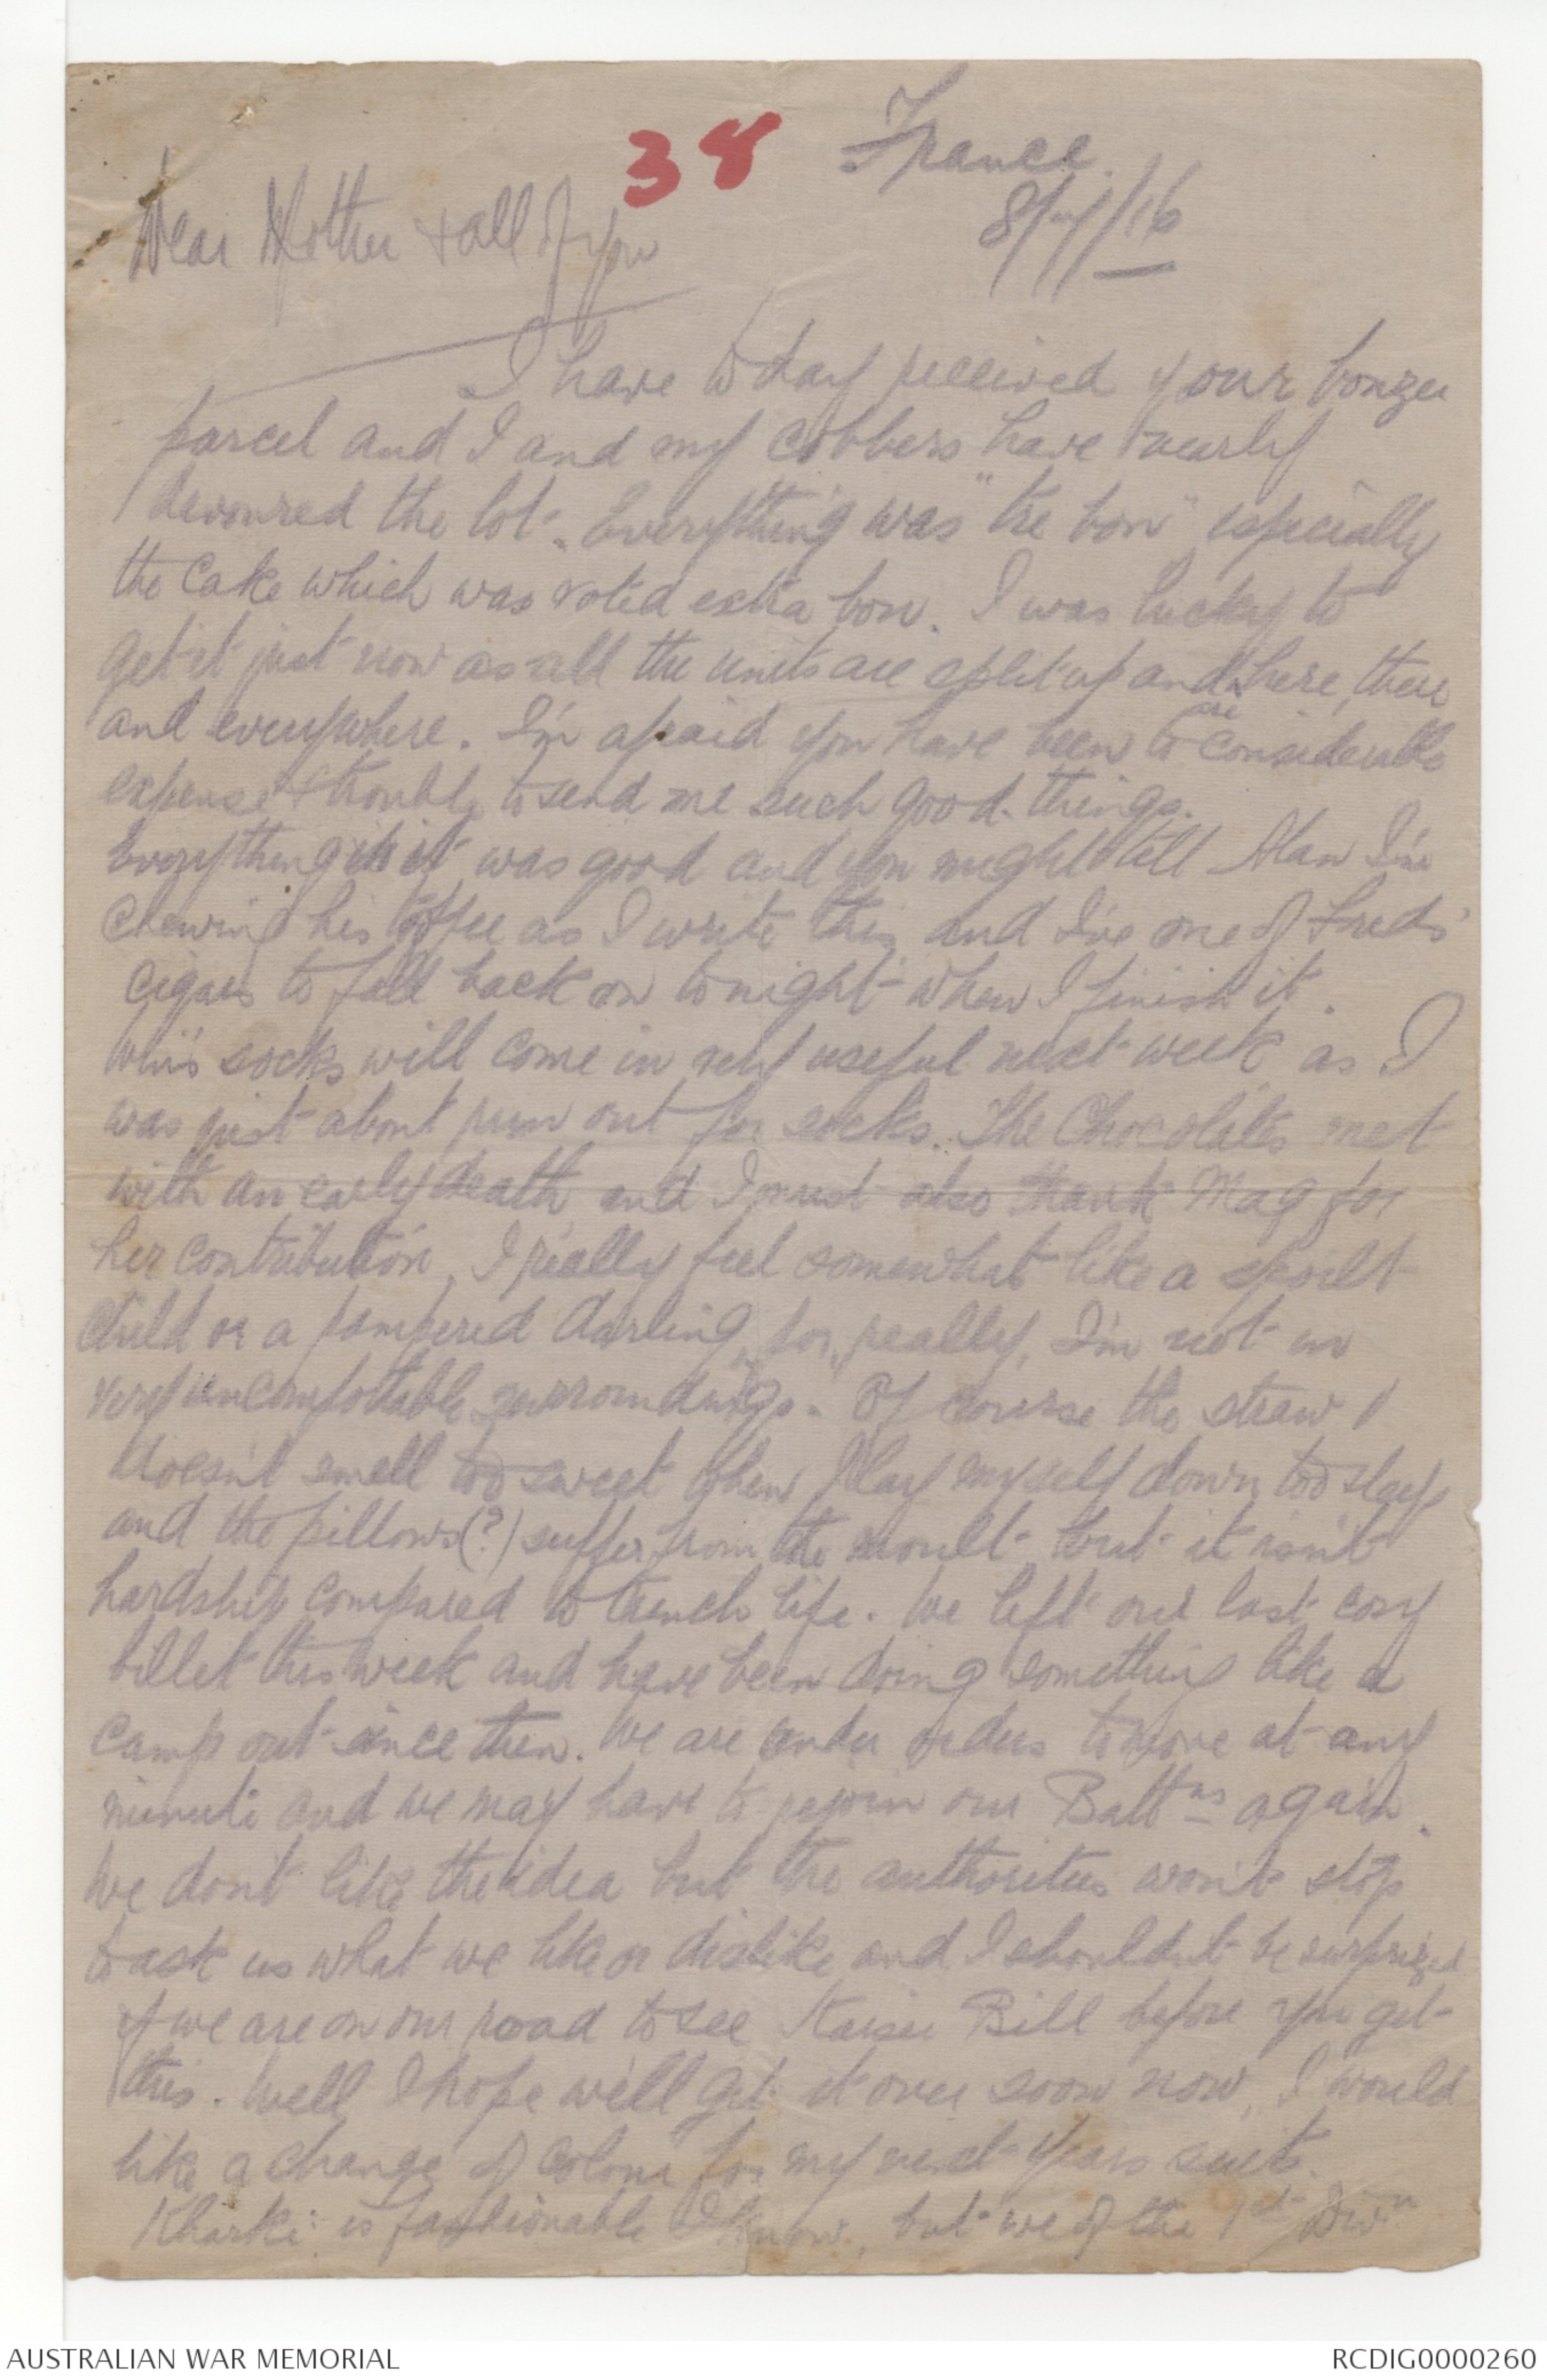 38
France.
8/7/16
Dear Mother & all of you
I have today received your bonzer
parcel and I and my cobbers have nearly
devoured the lot. Everything was "tre bon" especially
the cake which was voted extra bon. I was lucky to
get it just now as all the units are split up and are here, there
and everywhere. I'm afraid you have been to considerable
expense & trouble to send me such good things.
Everything in it was good and you might tell Alan I'm
chewing his toffee as I write this and I've one of Fred's
cigars to fall back on tonight when I finish it.
Win's socks will come in very useful next week as I
was just about run out for socks. The Chocolates met
with an early death and I must also thank Mag for
her contribution, I really feel somewhat like a spoilt
child or a pampered darling, for, really, I'm not in
very uncomfortable surroundings. Of course the straw
doesn't smell too sweet when I lay myself down too sleep
and the pillows (?) suffer from the moult but it isn't
hardship compared to trench life. We left our last cosy
billet this week and have been doing something like a
camp out since then. We are under orders to move at any
minute and we may have to rejoin our Battns again.
We don't like the idea but the authorities won't stop
to ask us what we like or dislike and I shouldn't be surprized
if we are on our road to see Kaiser Bill before you get
this. Well I hope we'll get it over soon now, I would
like a change of colour for my next years suit.
Kharki is fashionable I know, but we of the 1st Divn
AUSTRALIAN WAR MEMORIAL
RCDIG0000260